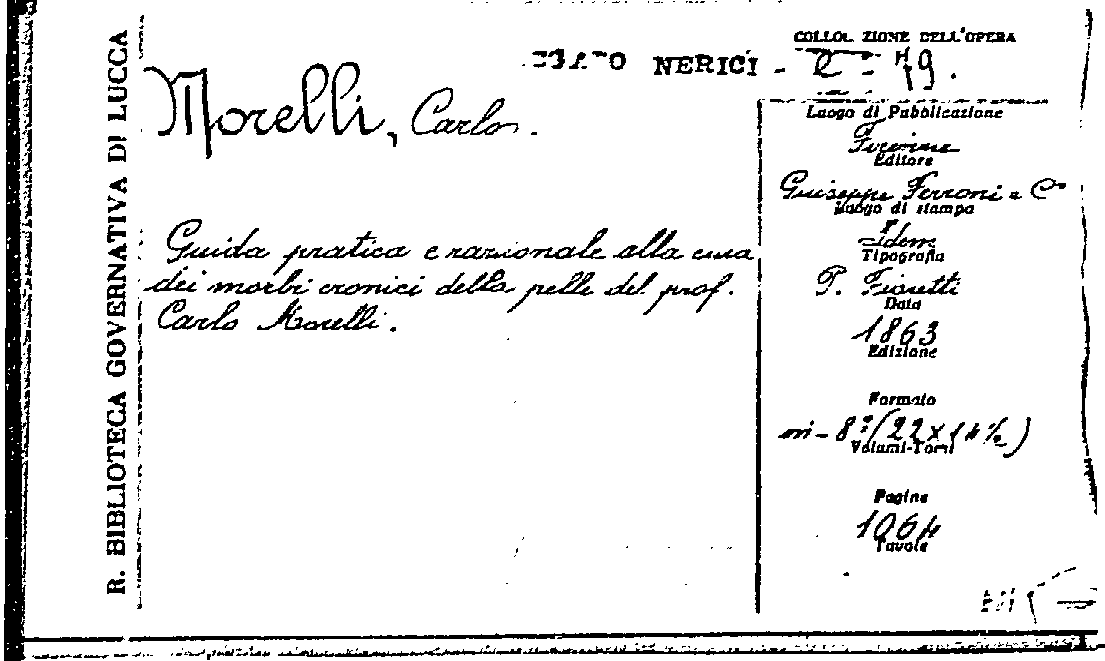 R. BIBLIOTECA GOVERNATIVA DI LUCCA
COLLOCAZIONE DELL'OPERA
NERICI - 2 - 79.
Morelli, Carlo.
Guida pratica e razionale alla cura
dei morbi cronici della pelle del prof.
Carlo Morelli.
Luogo di Pubblicazione
Firenze
Editore
Giuseppe Ferroni e Cº
Luogo di stampa
Idem
Tipografia
P. Fioretti
Data
1863
Edizione
Formato
in-8º (22 x 14½)
Volumi-Tomi
Pagine
1064
Tavole